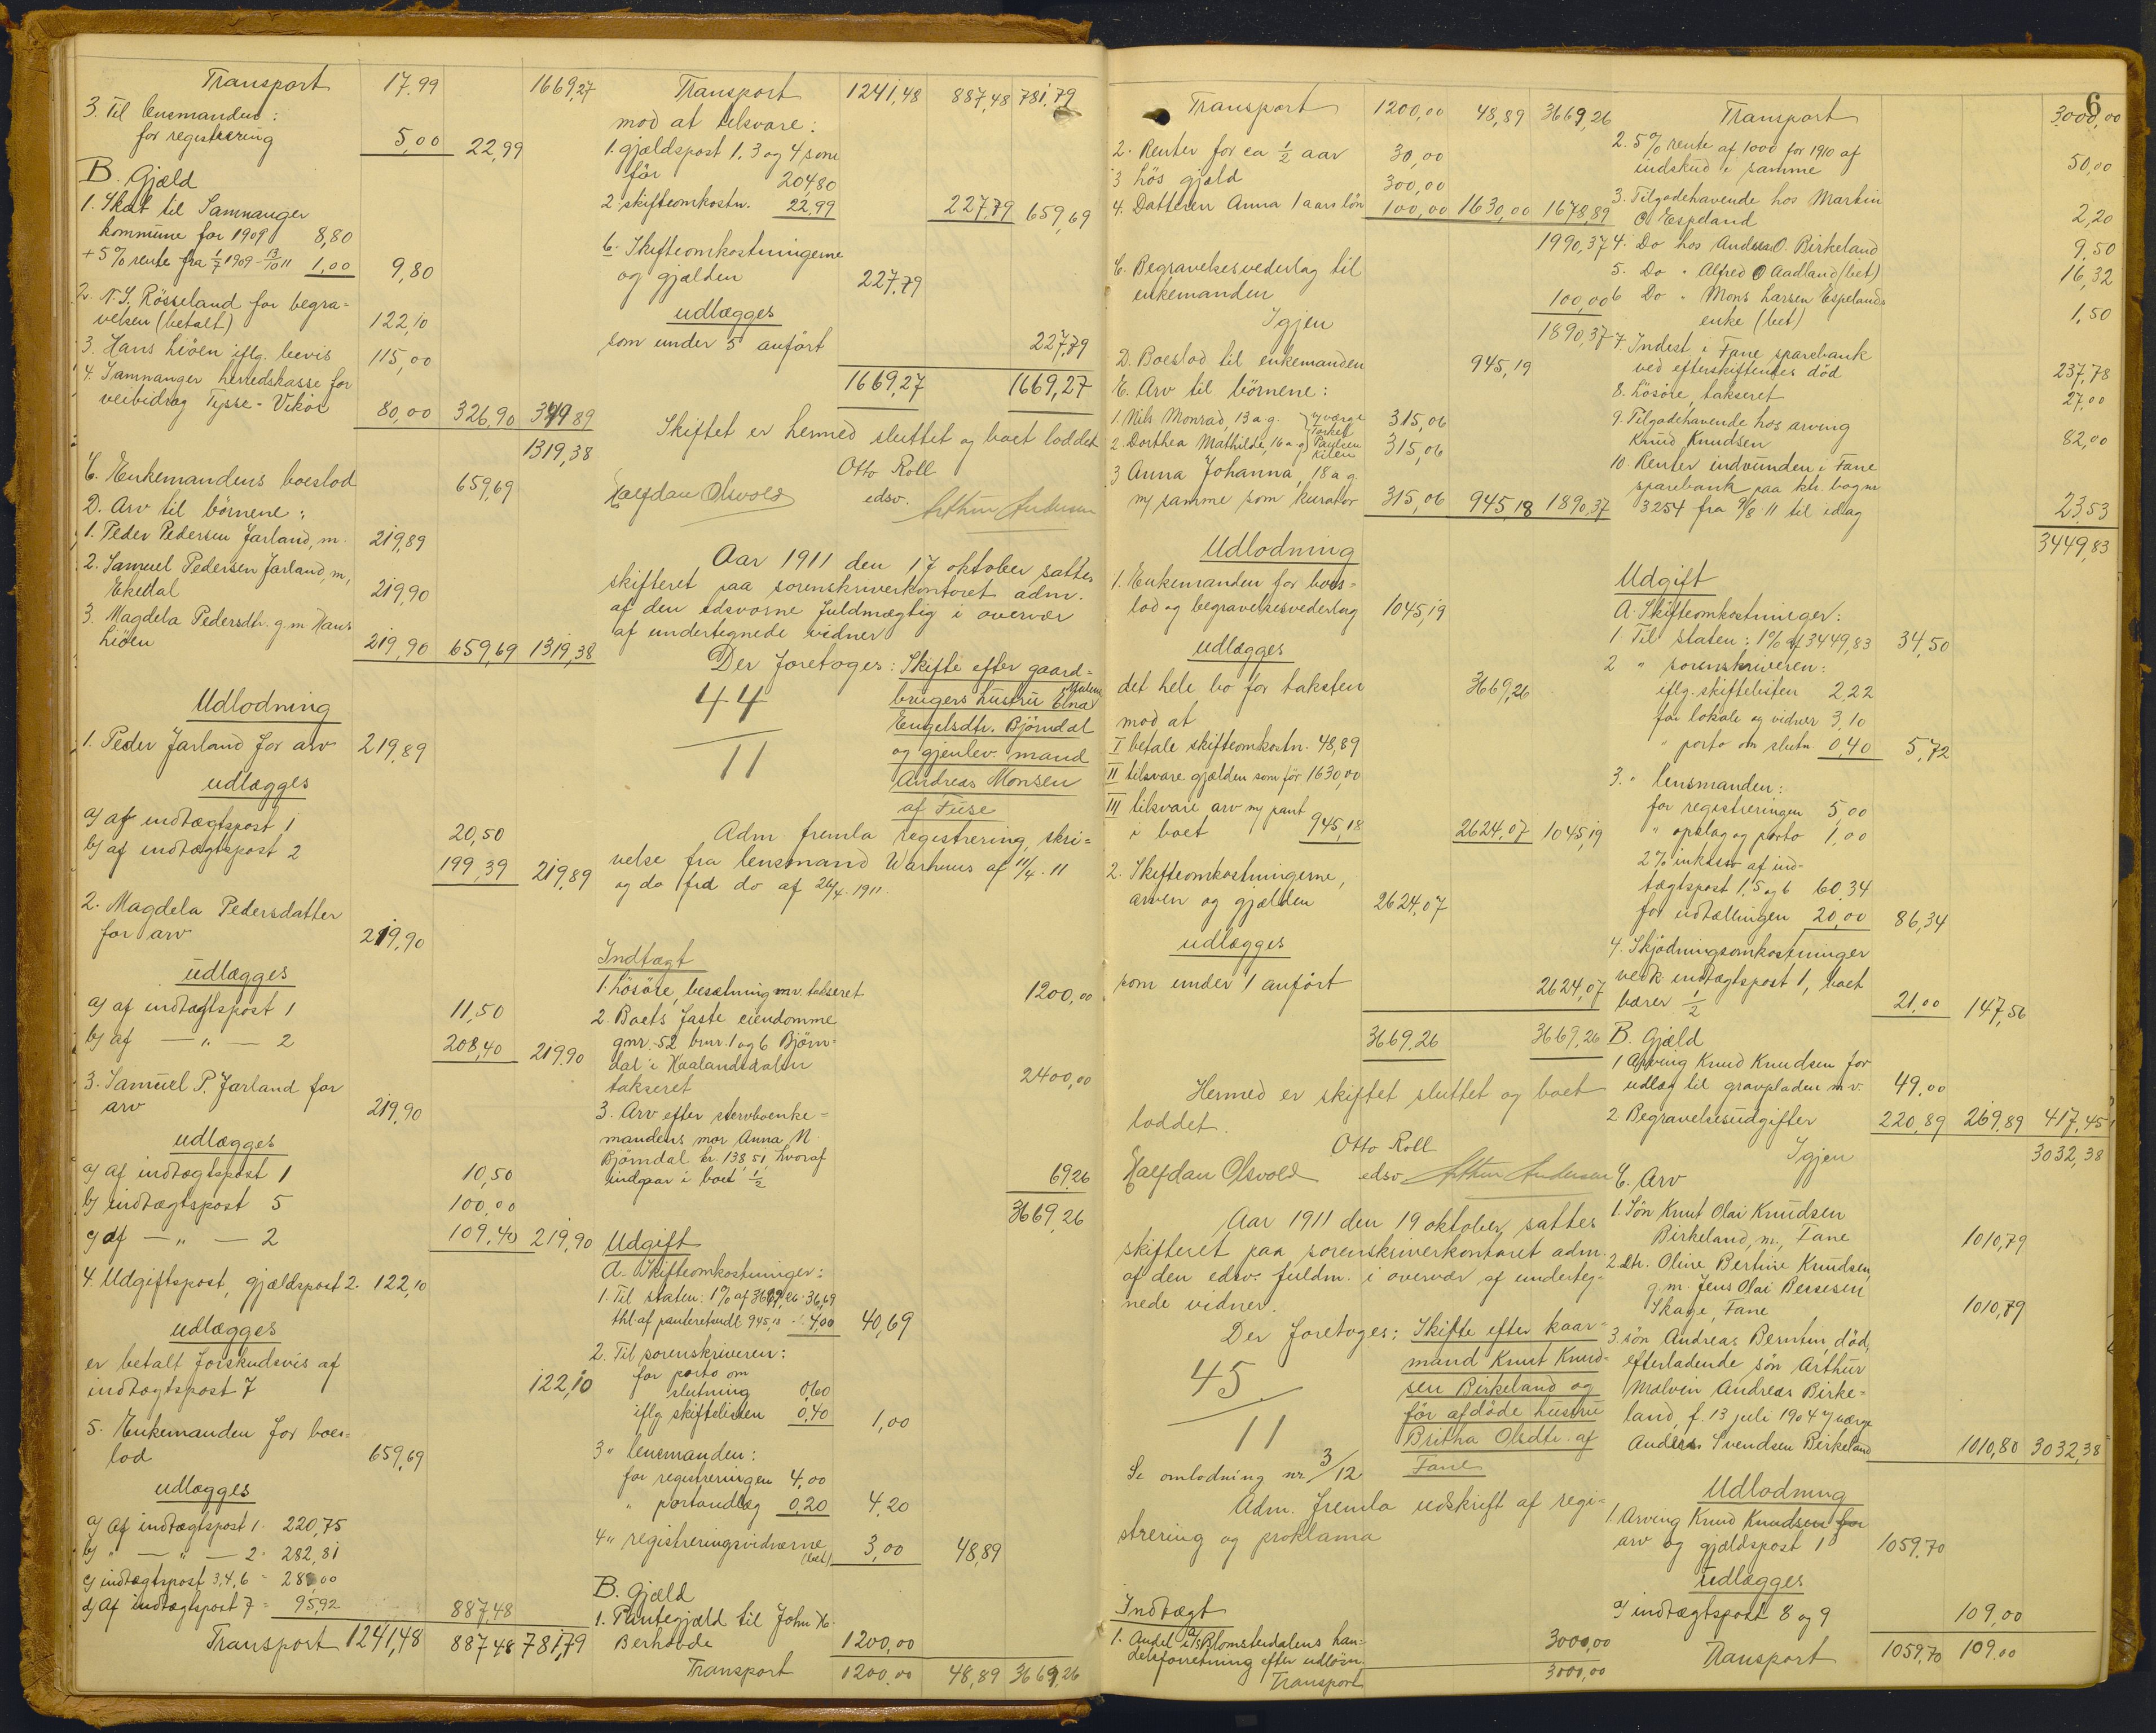 Transport 17.99 1669,27
3. Til lensmanden:
for registrering 5,00 22,99
B. Gjæld
1. Skat til Samnanger
kommune for 1909 8,80
+ 5% rente fra 1/7 1909 - 13/10 11 1,00 9,80
2. N. S. Rösseland for begra=
velsen (betalt) 122,10
3. Hans Liöen iflg. bevis 115,00
4. Samnanger herredskasse for
veibidrag Tysse - Vikör 80,00 326,90 349,89
1319,38
C. Enkemandens boeslod 659,69
D. Arv til börnene:
1. Peder Pedersen Jarland, m. 219,89
2. Samuel Pedersen Jarland, m,
Ekedal 219,90
3. Magdela Pedersdtr. g.m. Hans
Liöen 219,90 659,69 1319,38
Udlodning
1. Peder Jarland for arv 219,89
udlægges
a) af indtægtspost 1 20,50
b) af indtægtspost 2 199,39 219,89
2. Magdela Pedersdatter
for arv 219,90
udlægges
a) af indtægtspost 1 11,50
b) af — " — 2 208,40 219,90
3. Samuel P. Jarland for
arv 219,90
udlægges
a) af indtægtspost 1 10,50
b) indtægtspost 5 100,00
c) af — " — 2 109,40 219,90
4. Udgiftspost, gjældspost 2. 122,10
udlægges
er betalt forskudsvis af
indtægtspost 7 122,10
5. Enkemanden for boes=
lod 659,69
udlægges
a) af indtægtspost 1. 220,75
b) " — " — 2 - 282,81
c) indtægtspost 3,4,6 - 288,00
d) Af indtægtspost 7 - 95,92 887,48
Transport 1241,48 887,48 781,79
Transport 1241,48 887,48 781,79
mod at tilsvare:
1. gjældspost 1, 3 og 4 som
för 204,80
2. skifteomkostn. 22,99 227,79 659,69
6. Skifteomkostningerne
og gjælden 227,79
udlægges
som under 5 anfört 227,79
1669,27 1669,27
Skiftet er hermed sluttet og boet loddet
Otto Roll
edsv.
Halfdan Olsvold Arthur Andersen
Aar 1911 den 17 oktober sattes
skifteret paa sorenskriverkontoret adm.
af den edsvorne fuldmægtig i overvær
af undertegnede vidner
Der foretoges: Skifte efter gaard=
brugers hustru Elna Malene
Engelsdtr. Björndal
og gjenlev. mand
Andreas Monsen
af Fuse
44
11
Adm. fremla registrering, skri=
velse fra lensmand Warhuus af 11/4. 11
og do fra do af 26/4. 1911.
Indtægt
1. Lösöre, besætning mv. takseret 1200,00
2. Boets faste eiendomme
gnr. 52 bnr. 1 og 6 Björn=
dal i Haalandsdalen
takseret 2400,00
3. Arv efter stervboenke=
mandens mor Anna N.
Björndal kr. 138,51, hvoraf
indgaar i boet 1/2 69,26
3669,26
Udgift
A. Skifteomkostninger:
1. Til staten: 1% af 3669,26 - 36,69
thl. af panteretsudl. 945,18 - 4,00 40,69
2. Til sorenskriveren:
for porto om
slutning 0,60
iflg skiftelisten 0,40 1,00
3 " lensmanden:
for registreringen 4,00
" portoudlæg 0,20 4,20
4 " registreringsvidnerne
(bet.) 3,00 48,89
B. Gjæld
1. Pantegjæld til John H.
Berhovde 1200,00
Transport 1200,00 48,89 3669,26
Transport 1200,00 48,89 3669,26
2. Renter for ca 1/2 aar 30,00
3 Lös gjæld 300,00
4. Datteren Anna 1 aars lön 100,00 1630,00 1678,89
1990,37
C. Begravelsesvederlag til
enkemanden 100,00
Igjen 1890,37
D. Boeslod til enkemanden 945,19
E. Arv til börnene:
1. Nils Monrad, 13 a.g. 315,06
2. Dorthea Mathilde, 16 a.g. 315,06
m/ værge
Torkel
Paulsen
Kilen
3 Anna Johanna, 18 a.g.
m/ samme som kurator 315,06 945,18 1890,37
Udlodning
1. Enkemanden for boes=
lod og begravelsesvederlag 1045,19
udlægges
det hele bo for taksten 3669,26
mod at
I betale skifteomkostn. 48,89
II tilsvare gjælden som för 1630,00
III tilsvare arv m/ pant
i boet 945,18 2624,07 1045,19
2. Skifteomkostningerne,
arven og gjælden 2624,07
udlægges
som under 1 anfört 2624,07
3669,26 3669,26
Hermed er skiftet sluttet og boet
loddet.
Otto Roll
Halfdan Olsvold edsv. Arthur Andersen
Aar 1911 den 19 oktober sattes
skifteret paa sorenskriverkontoret adm.
af den edsv. fuldm. i overvær af underteg=
nede vidner.
Der foretoges: Skifte efter kaar=
mand Knut Knud=
sen Birkeland og
för afdöde hustru
Britha Olsdtr. af
Fane
45
11
Se omlodning nr. 3/12
Adm. fremla udskrift af regi=
strering og proklama
Indtægt
1. Andel i a/s Blomsterdalens han=
delsforretning efter udlösn. 3000,00
Transport 3000,00
6
Transport 3000,00
2. 5% rente af 1000 for 1910 af
indskud i samme 50,00
3. Tilgodehavende hos Martin
O Espeland 2,20
4. Do hos Anders O. Birkeland 9,50
5. Do " Alfred O Aadland (bet) 16,32
6 Do " Mons Larsen Espelands
enke (bet) 1,50
7. Indest. i Fane sparebank
ved efterskiftendes död 237,78
8. Lösöre, takseret 27,00
9. Tilgodehavende hos arving
Knud Knudsen 82,00
10. Renter indvunden i Fane
sparebank paa ktr. bog nr
3254 fra 9/8 11 til idag 23,53
3449,83
Udgift
A. Skifteomkostninger:
1. Til staten: 1% af 3449,83 34,50
2 " sorenskriveren:
iflg. skiftelisten 2,22
for lokale og vidner 3,10
" porto om slutn. 0,40 5,72
3. " lensmanden:
for registreringen 5,00
" opslag og porto 1,00
2% inkasso af ind=
tægtspost 1, 5 og 6 60,34
for udtællingen 20,00 86,34
4. Skjödningsomkostninger
vedk. indtægtspost 1, boet
bærer 1/2 21,00 147,56
B. Gjæld
1 Arving Knud Knudsen for
udlæg til gravpladen m.v. 49,00
2 Begravelsesudgifter 220,89 269,89 417,45
Igjen 3032,38
C. Arv
1. Sön Knut Olai Knudsen
Birkeland, m., Fane 1010,79
2. Dtr. Oline Bertine Knudsen,
g.m. Jens Olai Bersesen
Skage, Fane 1010,79
3. sön Andreas Berntin, död,
efterladende sön Arthur
Malvin Andreas Birke=
land, f. 13 juli 1904 m/ værge
Anders Svendsen Birkeland 1010,80 3032,38
Udlodning
1. Arving Knud Knudsen for
arv og gjældspost 1 1059,70
udlægges
a) indtægtspost 8 og 9 109,00
Transport 1059,70 109,00